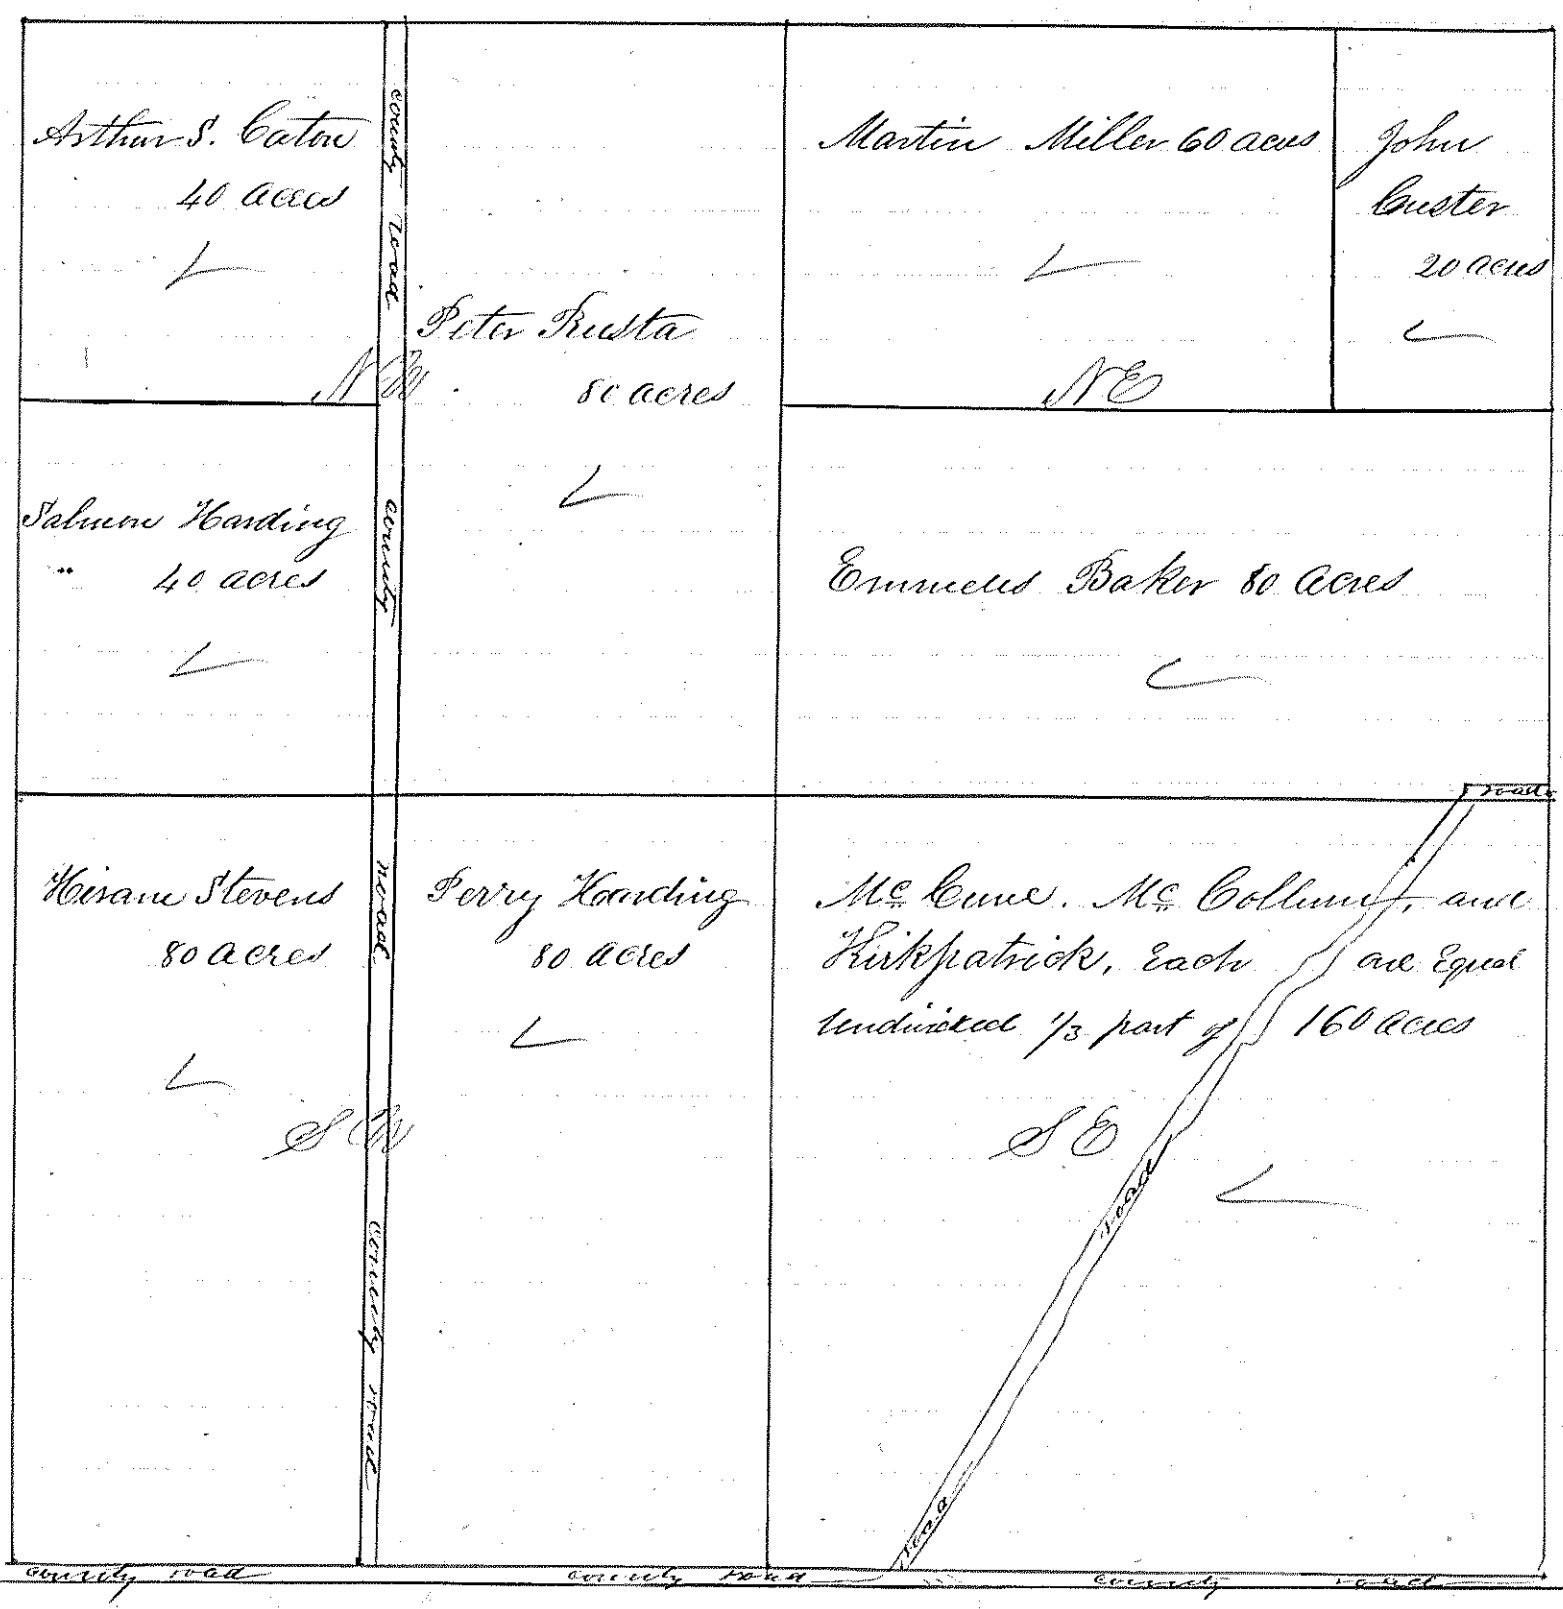 Arthur S. Caton
40 acres
county road
Peter Rusta
80 acres
NW
Martin Miller 60 acres
NE
John
Custer
20 acres
Salmon Harding
" 40 acres
county
Emmelus Baker 80 acres
road
Hiram Stevens
80 acres
road
Perry Harding
80 acres
Mc Cune. Mc Collum, and
Kirkpatrick, Each are Equal
undivided 1/3 part of 160 acres
SW
SE
road
county road
road
county road
county road
county road